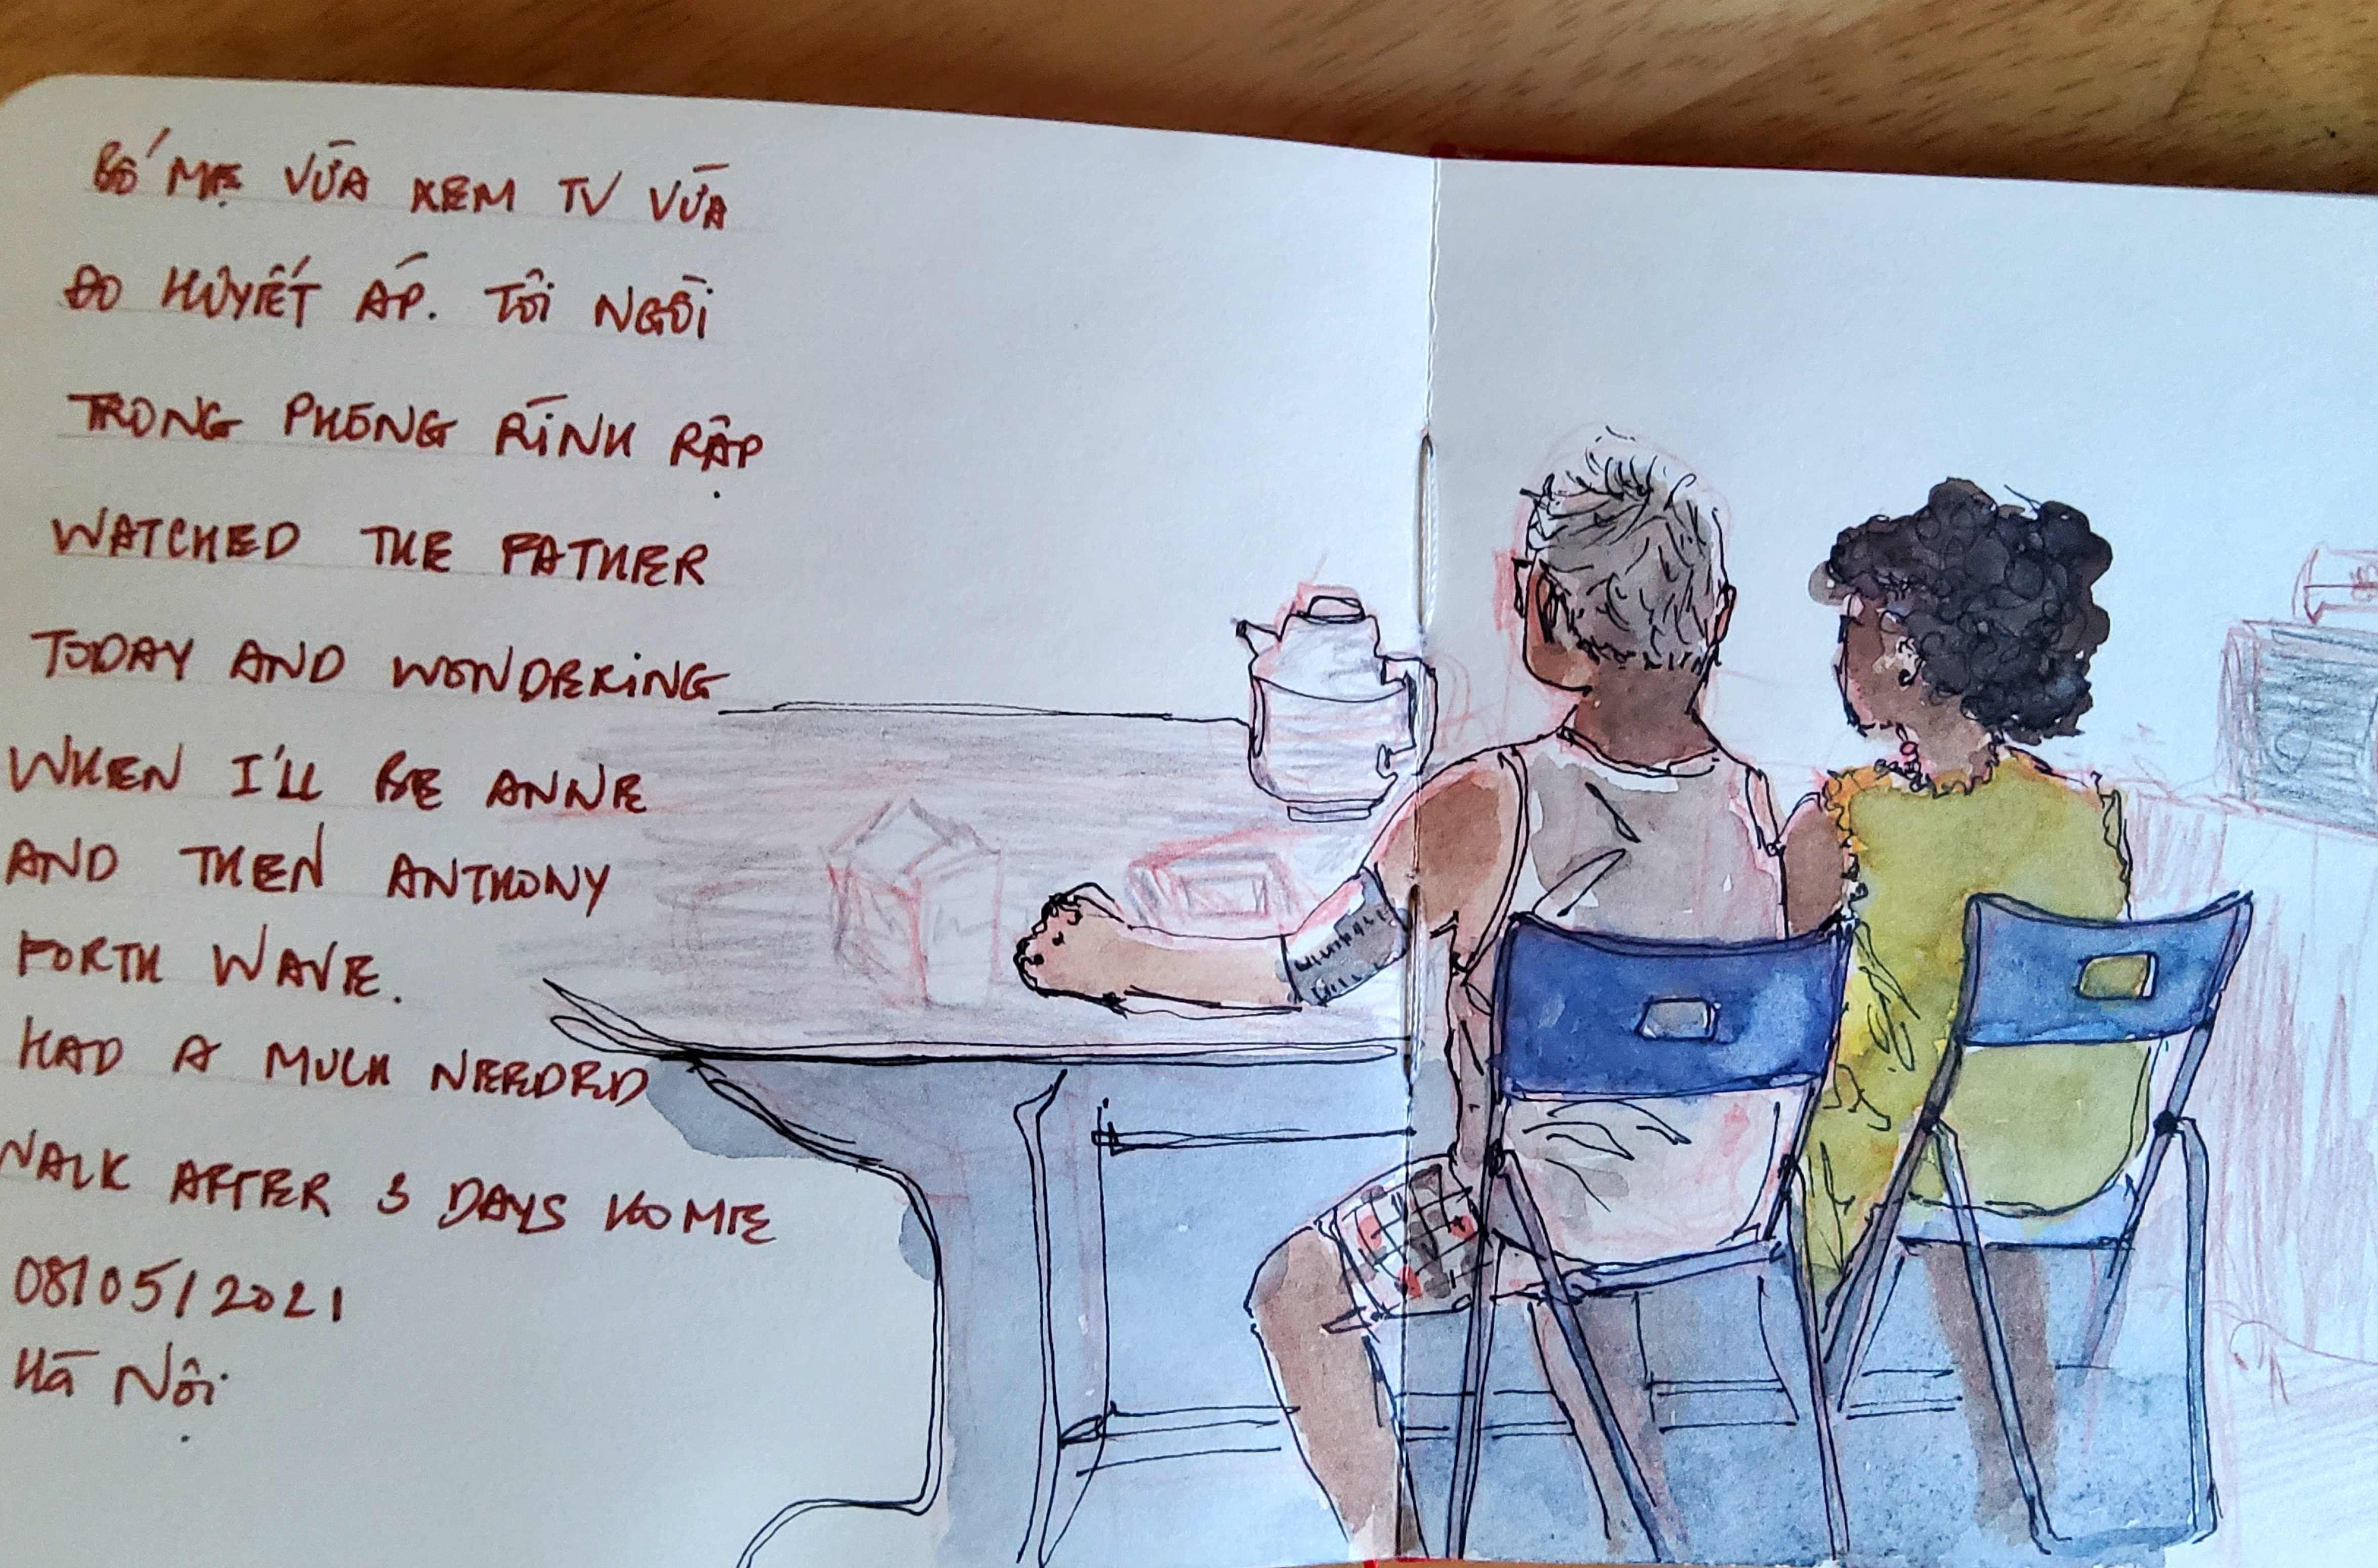 BỐ MẸ VỪA XEM TV VỪA
ĐO HUYẾT ÁP. TÔI NGỒI
TRONG PHÒNG RÌNH RẬP
WATCHED THE FATHER
TODAY AND WONDERING
WHEN I'LL BE ANNE
AND THEN ANTHONY
FORTH WAVE.
HAD A MUCH NEEDED
WALK AFTER 3 DAYS HOME
08/05/2021
HÀ NỘI